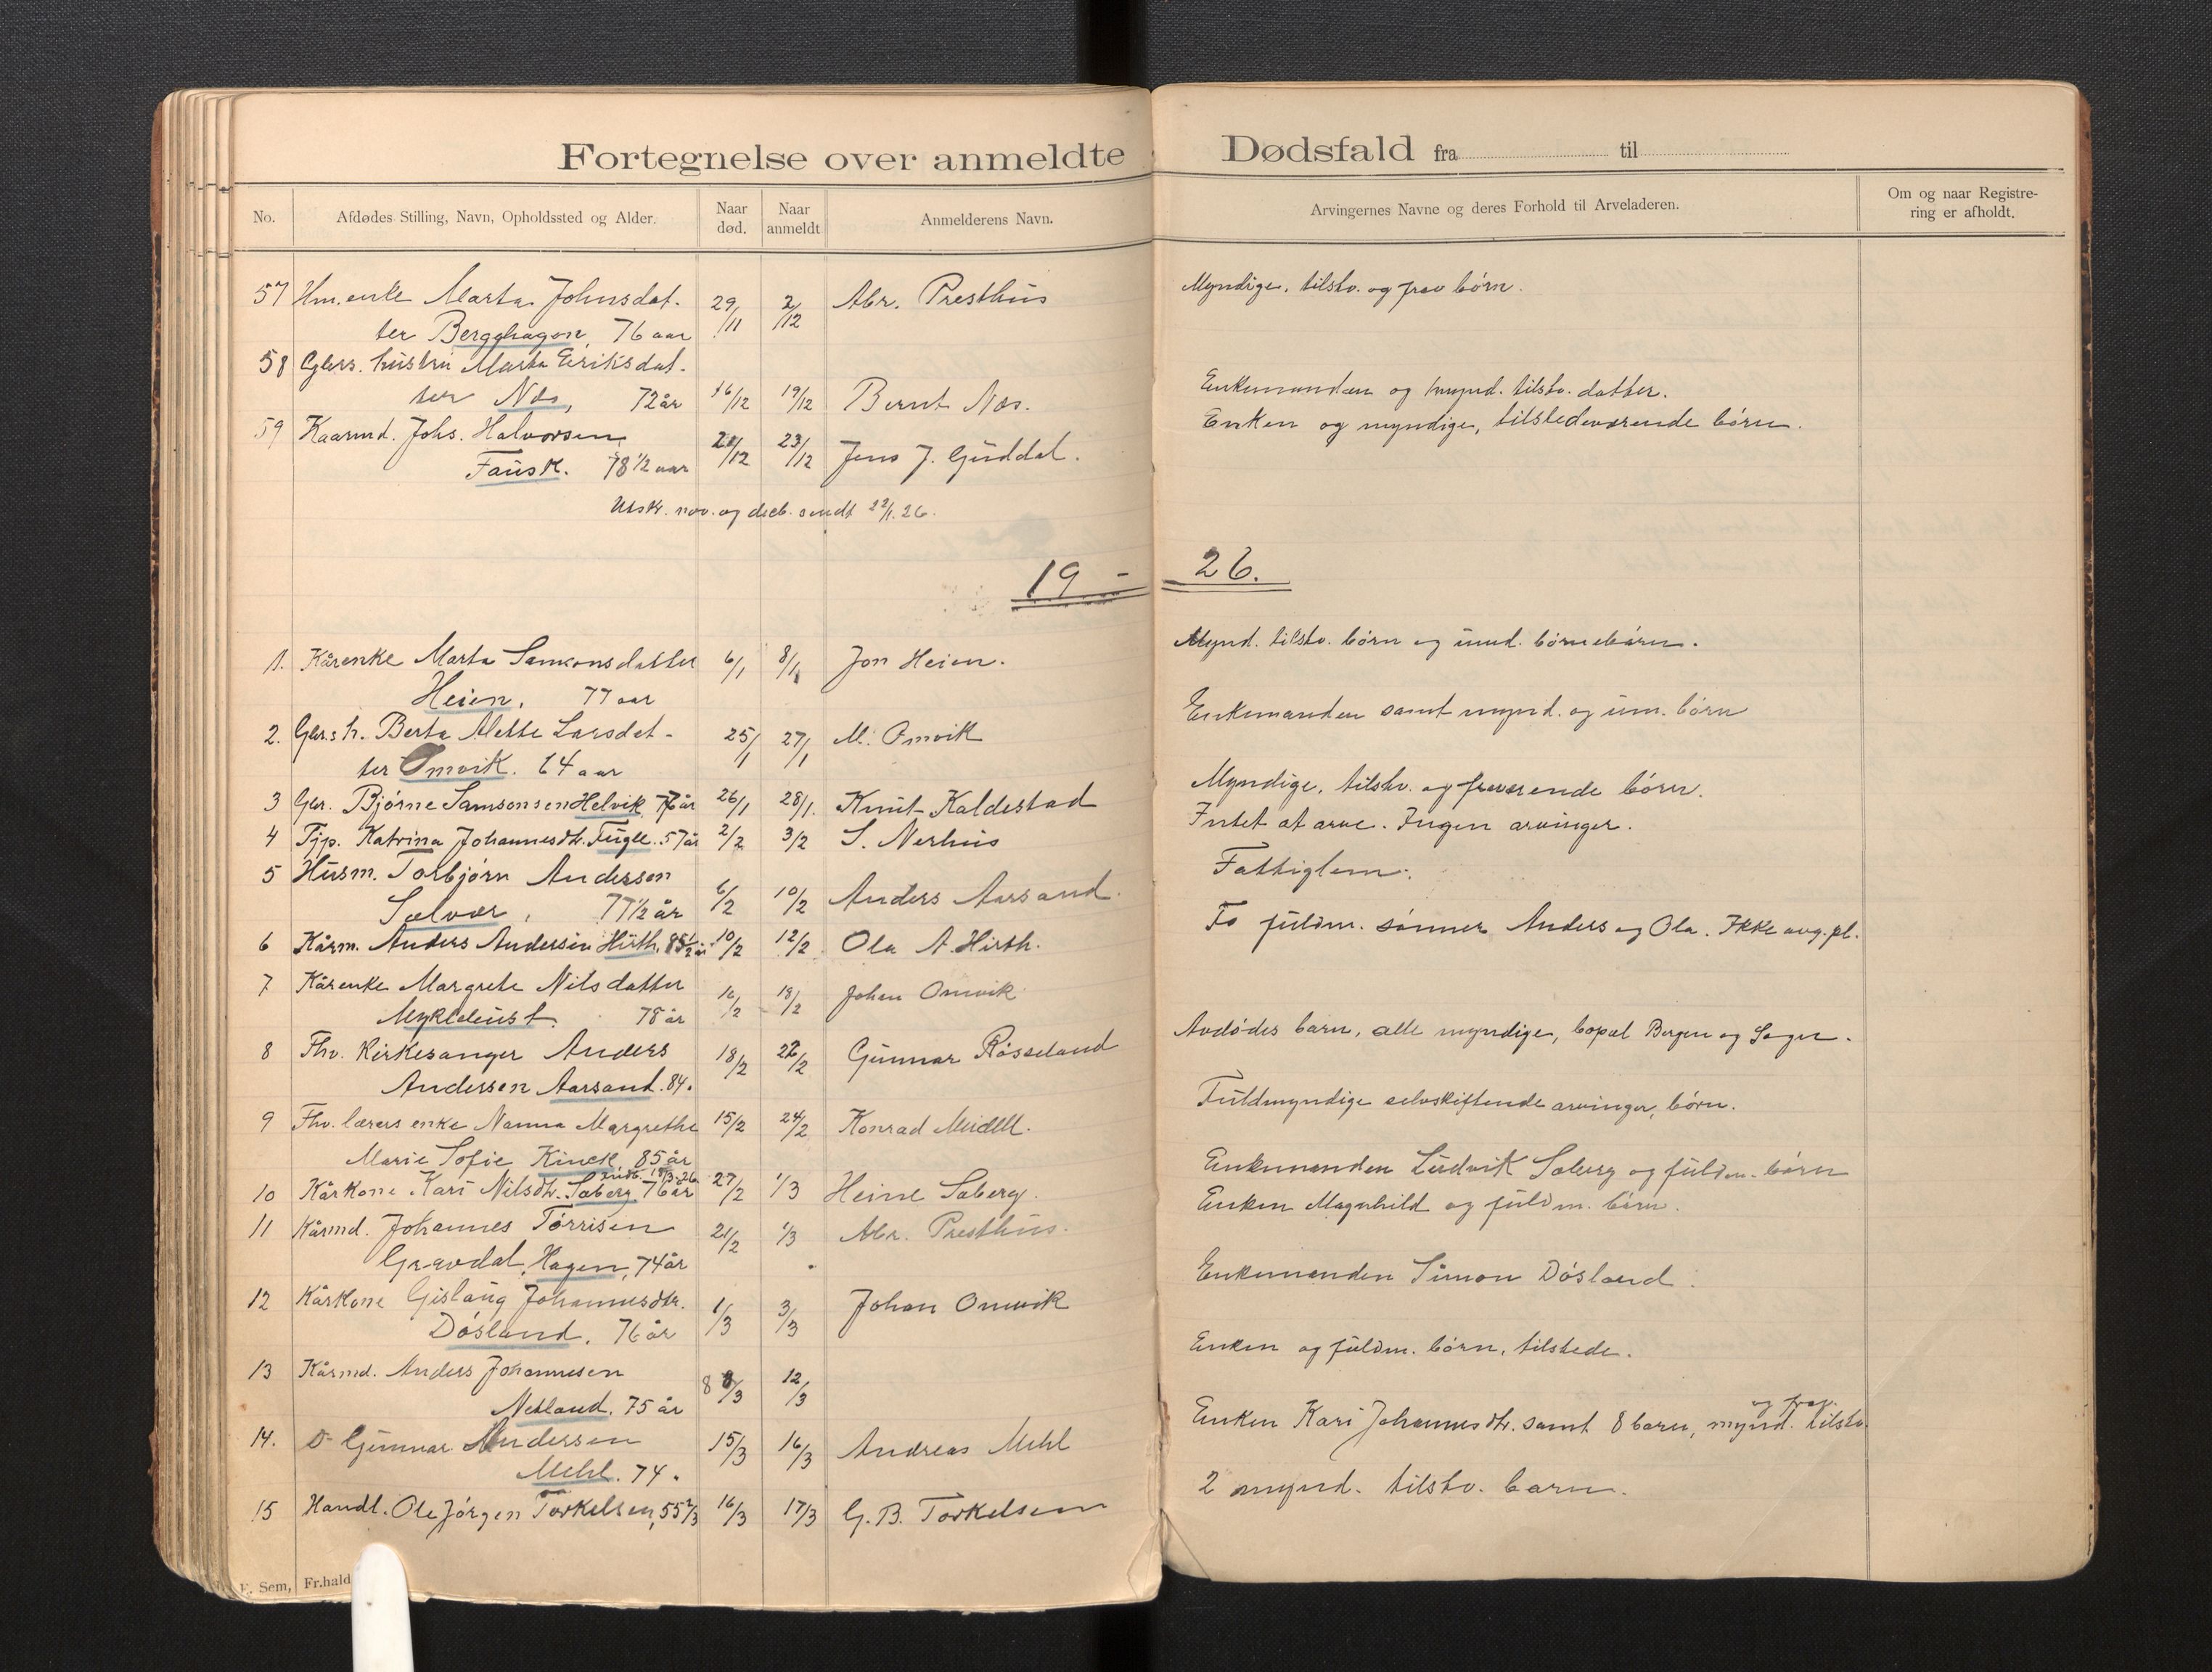 Fortegnelse over anmeldte Dødsfald fra til
No. Afdødes Stilling, Navn, Opholdssted og Alder. Naar død. Naar anmeldt Anmelderens Navn. Arvingernes Navne og deres Forhold til Arveladeren. Om og naar Registrering er afholdt.
57 Hm.enke Marta Johnsdat- 29/11 2/12 Abr. Presthus Myndige, tilstv. og frav børn.
ter Berghagen, 76 aar
58 Gbrs. hustru Marta Eriksdat-
ter Nes, 72 år 16/12 19/12 Bernt Nes. Enkemanden og mynd. tilstv. datter.
59 Kaarmd. Johs. Halvorsen 21/12 23/12 Jens J. Guddal. Enken og myndige, tilstedeværende børn.
Fausk. 78 1/2 aar
Utskr. nov. og decb. sendt 22/1.26.
19 - 26.
1. Kårenke Marta Samsonsdatter 6/1 8/1 Jon Heien. Mynd. tilstv. børn og umd. børnebørn.
Heien, 77 aar
2. Gbr.s h. Berta Mette Larsdat- 25/1 27/1 M. Omvik Enkemanden samt mynd. og um. børn
ter Omvik. 64 aar
3 Gbr. Bjørne Samsonsen Helvik, 76 år 26/1 28/1. Knut Kaldestad Myndige, tilstv. og fraværende børn.
4 Tjp. Katrina Johannesdtr. Fugle. 57 år 2/2 3/2 S. Nerhus Intet at arve. Ingen arvinger.
5 Husm. Torbjørn Anderson Fattiglem.
Selvær, 77 1/2 år 6/2 10/2 Anders Aarsand.
6 Kårm. Anders Andersen Hirth, 85 1/2 år 10/2 12/2 Ola A. Hirth. To fuldm. sønner Anders og Ola. Ikke avg.pl.
7 Kårenke Margrete Nilsdatter 16/2 18/2 Johan Omvik
Mykleust. 78 år
8 Fhv. Kirkesanger Anders 18/2 22/2 Gunnar Røsseland Avdødes barn, alle myndige, bopæl Bergen og Sogn.
Andersen Aarsand. 84.
9 Fhv. lærers enke Nanna Margrethe 15/2 24/2 Konrad Meidell. Fuldmyndige selvskiftende arvinger, børn.
Marie Sofie Kinck 85 år
10 Kårkone Kari Nilsdtr. Søberg 76 år 27/2 1/3 Heine Søberg. Enkemanden Ludvik Søberg og fuldm. børn
11 Kårmd. Johannes Tørrisen 21/2 1/3 Abr. Presthus. Enken Magnhild og fuldm. børn.
Gravdal, Hagen, 74 år
12 Kårkone Gislaug Johannesdtr. 1/3 3/3 Johan Omvik Enkemanden Simon Døsland.
Døsland. 76 år
13 Kårmd. Anders Johannesen 8/3 12/3 Enken og fuldm. børn, tilstede.
Netland. 75 år
14. D- Gunnar Andersen 15/3 16/3 Andreas Mehl Enken Kari Johannesdtr. samt 8 barn, mynd. og frav. tilstv.
Mehl. 74.
15 Handl. Ole Jørgen Torkelsen, 55 2/3 16/3 17/3 G. B. Torkelsen 2 mynd. tilstv. barn.
E. Sem, Fr.hald